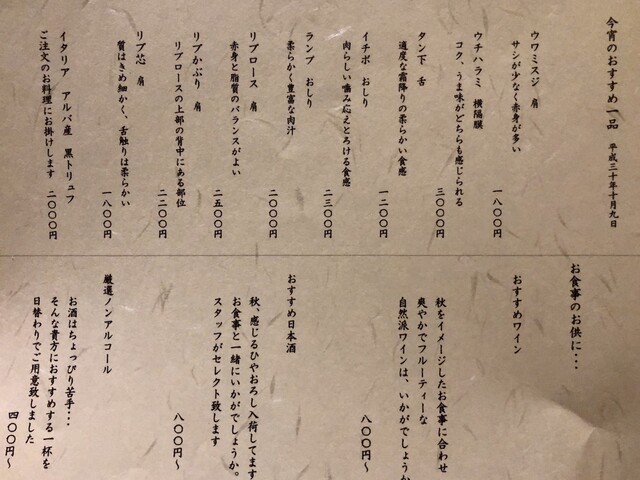 今宵のおすすめ一品　平成三十年十月九日
ウワミスジ　肩
サシが少なく赤身が多い
一八〇〇円
ウチハラミ　横隔膜
コク、うま味がどちらも感じられる
三〇〇〇円
タン下　舌
適度な霜降りの柔らかい食感
一二〇〇円
イチボ　おしり
肉らしい噛み応えとろける食感
二三〇〇円
ランプ　おしり
柔らかく豊富な肉汁
二〇〇〇円
リブロース　肩
赤身と脂質のバランスがよい
二五〇〇円
リブかぶり　肩
リブロースの上部の背中にある部位
二二〇〇円
リブ芯　肩
質はきめ細かく、舌触りは柔らかい
一八〇〇円
イタリア　アルバ産　黒トリュフ
ご注文のお料理にお掛けします
二〇〇〇円
お食事のお供に・・・
おすすめワイン
秋をイメージしたお食事に合わせ
爽やかでフルーティーな
自然派ワインは、いかがでしょうか
八〇〇円～
おすすめ日本酒
秋、感じるひやおろし入荷してます
お食事と一緒にいかがでしょうか。
スタッフがセレクト致します
八〇〇円～
厳選ノンアルコール
お酒はちょっぴり苦手・・・
そんな貴方におすすめする一杯を
日替わりでご用意致しました
四〇〇円～